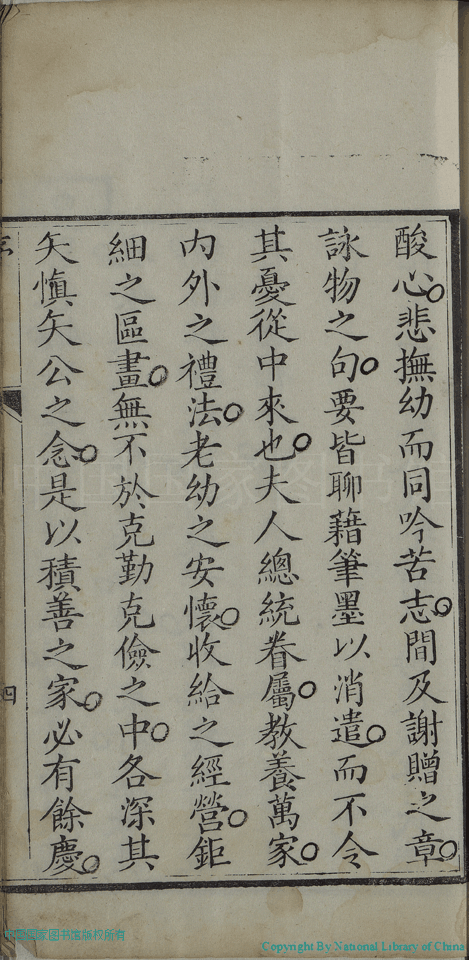 酸心○悲撫幼而同吟苦志○間及謝贈之章○
詠物之句○要皆聊籍筆墨以消遣○而不令
其憂從中來也○夫人總統眷屬○教養萬家○
内外之禮法○老幼之安懷○收給之經營○鉅
細之區畫○無不於克勤克儉之中○各深其
矢慎矢公之念○是以積善之家○必有餘慶○
四
中国国家图书馆版权所有
Copyright By National Library of China